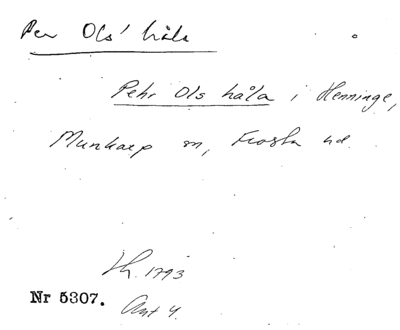 Per Ols' håla
Pehr Ols håla i Henninge,
Munkarp sn, Frosta hd
1793
Nr 5307.
Akt 4.